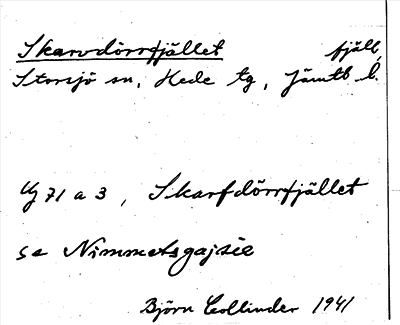 Skarvdörrfjället fjäll,
Storsjö sn, Hede tg, Jämtl l.
Ug 71 a 3, Skarfdörrfjället
se Nimmetsgajsie
Björn Collinder 1941